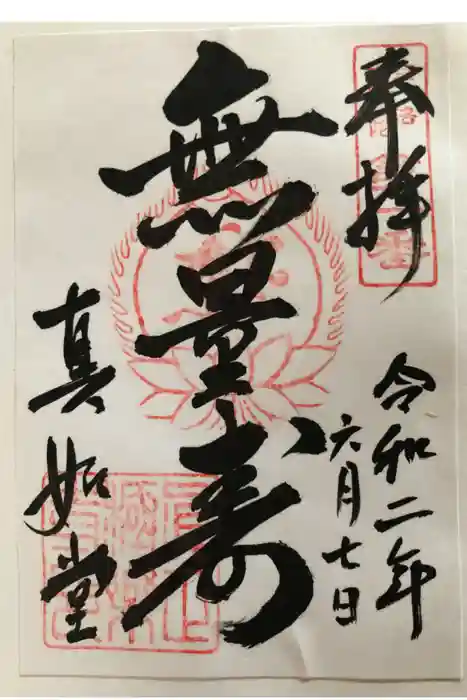 奉拝
令和二年
六月七日
無量壽
真如堂